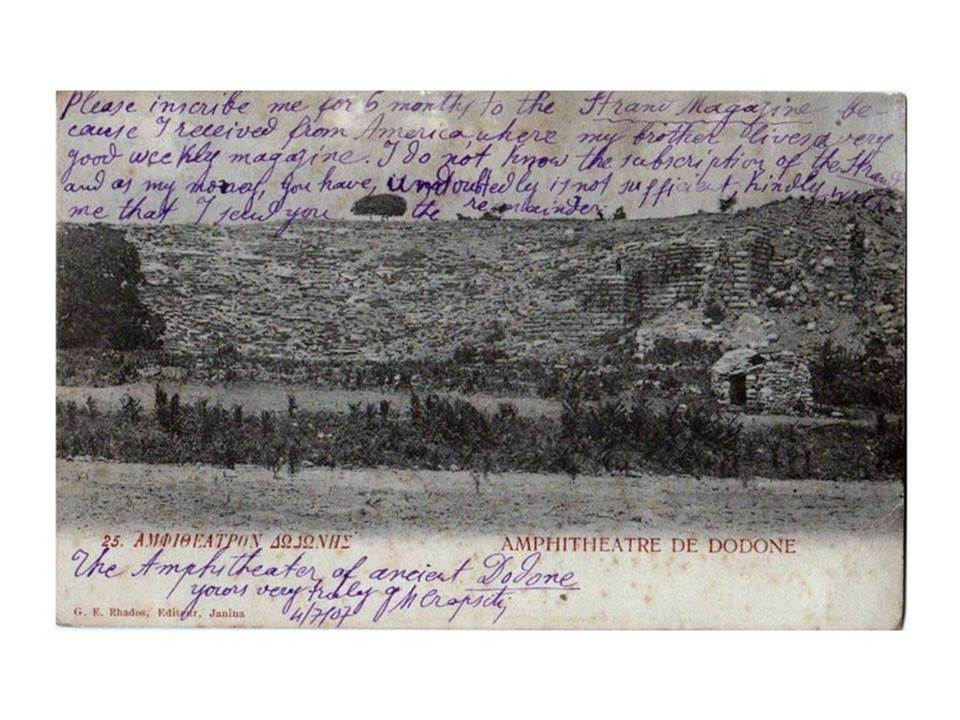 Please inscribe me for 6 months to the Strand Magazine be-
cause I received from America, where my brother lives a very
good weekly magazine. I do not know the subscription of the Strand
and as my money, you have, undoubtedly is not sufficient, kindly write
me that I send you the remainder.
25. ΑΜΦΙΘΕΑΤΡΟΝ ΔΩΔΩΝΗΣ
AMPHITHEATRE DE DODONE
The Amphitheater of ancient Dodone
yours very truly
4/7/07
G. E. Rhados, Editeur, Janina